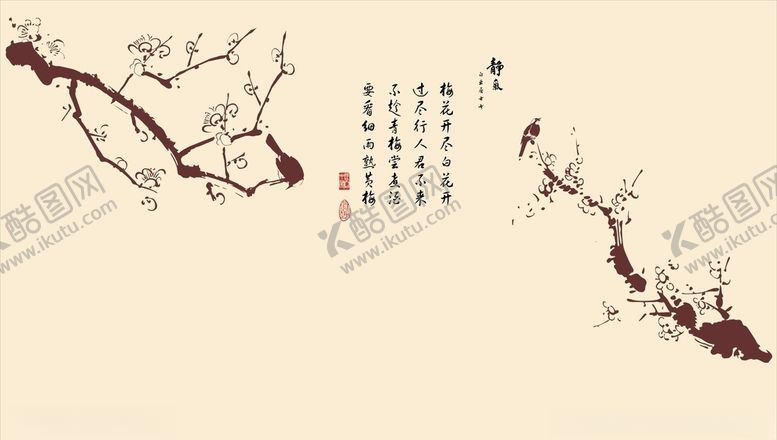 静氣
梅花开尽白花开
过尽行人君不来
不趁青梅尝煮酒
要看细雨熟黄梅
酷图网
www.ikutu.com
酷图网
www.ikutu.com
酷图网
www.ikutu.com